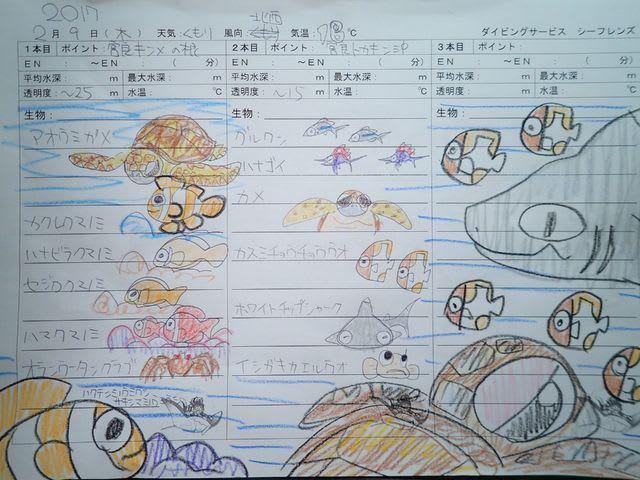 2017
2月9日(木) 天気:くもり 風向:北西 気温:18℃ ダイビングサービス シーフレンズ
1本目 ポイント:宮良キンメの根 2本目 ポイント:宮良トカキン 3本目 ポイント:
EN : ~EN : ( 分) EN : ~EN : ( 分) EN : ~EN : ( 分)
平均水深: m 最大水深: m 平均水深: m 最大水深: m 平均水深: m 最大水深: m
透明度:~25 m 水温: ℃ 透明度:~15 m 水温: ℃ 透明度: m 水温: ℃
生物: 生物: 生物:
アオウミガメ
カクレクマノミ
ハナビラクマノミ
セジロクマノミ
ハマクマノミ
オランウータンクラブ
ハクテンミノウミウシ
グルクン
ハナゴイ
カメ
カスミチョウチョウウオ
ホワイトチップシャーク
イシガキカエルウオ